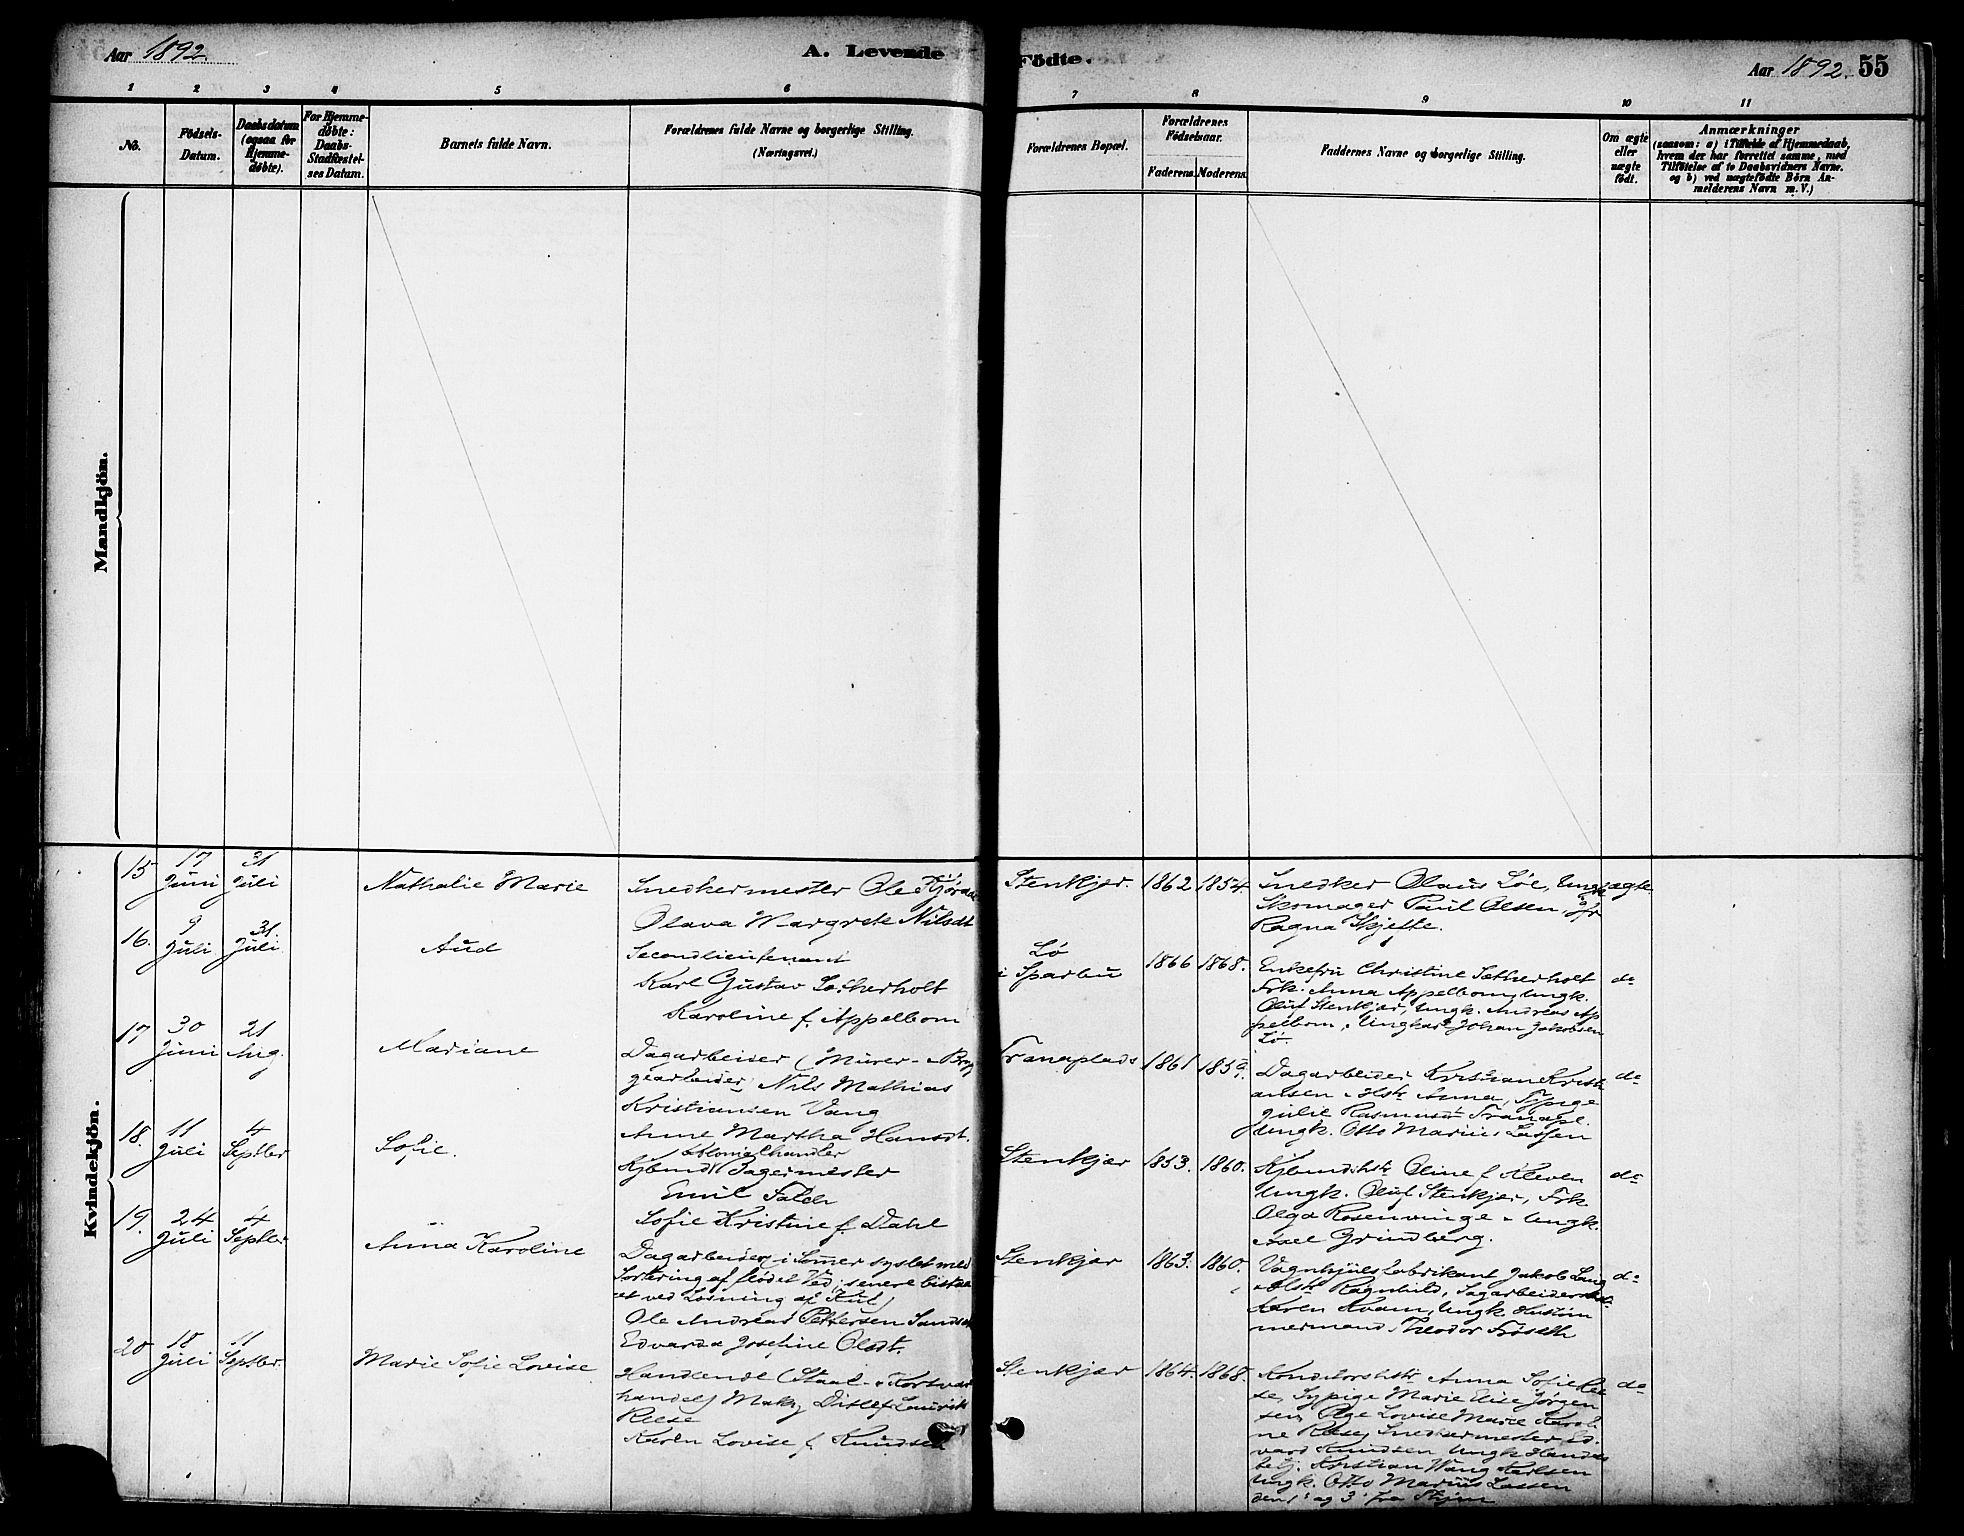 Aar 1892.
A. Levende Födte.
Aar 1892. 55
1 2 3 4 5 6 7 8 9 10 11
No.
Födsels-
Datum.
Daabsdatum
(ogsaa for
Hjemme-
døbte).
For Hjemme-
døbte:
Daabs-
Stadfæstel-
ses Datum.
Barnets fulde Navn.
Forældrenes fulde Navne og borgerlige Stilling.
(Næringsvei.)
Forældrenes Bopæl.
Forældrenes
Födselsaar.
Faderens. Moderens.
Faddernes Navne og borgerlige Stilling.
Om ægte
eller
uægte
födt.
Anmærkninger
(saasom: a) i Tilfælde af Hjemmedaab,
hvem der har forrettet samme, med
Tilföielse af to Daabsvidners Navne,
og b) ved uægtefödte Börn An-
melderens Navn m. V.)
Mandkjön.
Kvindekjön.
15
17
Juni
31
Juli
Nathalie Marie
Snedkermester Ole
Olava Margrete Nilsdt
Stenkjer. 1862 1854.
Snedker Olaus Løe, Ungk
Skomager Paul Olsen,
Ragna Skjefte.
ægte
16.
9
Juli
31.
Juli
Aud
Secondlieutenant
Karl Gustav Sætherholt
Karoline f. Appelbom
Lø
i Sparbu
1866 1868.
Enkefru Christine Sætherholt
Frk. Anna Appelbom, Ungk.
Oluf Stenkjær, Ungk. Andreas Ap
pelbom, Ungkar Johan Jakobsen
Lø.
do
17
30
Juni
21
Aug.
Mariane
Dagarbeider (Murer- o Bryg
gearbeider) Nils Mathias
Kristiansen Vang
Anne Martha Hansdt.
Tranaplads 1861
Dagarbeider Kristian Kristi
ansen o Hstr Anna, Sypige
Julie Rasmusdt Tranapl.
Ungk. Otto Marius Lassen
do
18.
11
Juli
4
Septbr
Sofie.
Kjøbmd Jagermester
Emil Falch
Sofie Kristine f. Dahl
Stenkjær 1853. 1860.
Kjøbmdshstr Oline f Kleven
Ungk. Oluf Stenkjær, Frk
Olga Rosenvinge o Ungk.
Axel Grindberg.
do
19.
24
Juli
4
Septbr
Anna Karoline
Dagarbeider (i Sommer syslet med
Sortering af flödet Ved; senere
ved Losning af Kul)
Ole Andreas Pettersen
Edvarda Josefine Olsdt.
Stenkjær 1863. 1860.
Vognhjulsfabrikant Jakob Lang
o Hstr Ragnhild, Sagarbeider
Karen Kvam, Ungk
mermand Theodor Fröseth
do
20
18
Juli
11
Septbr.
Marie Sofie Lovise
Handlende (Staal- o Kortvar
handel) Ditlef Laurits
Reese
Karen Lovise f. Knudsen
Stenkjær 1864. 1868.
Konditorshstr Anna Sofie Ree
se, Sypige Marie Elise Jørgen
sen, Pige Lovise Marie Karoli
ne Reese, Snedkermester Ed
vard Knudsen, Ungk Handels
betj. Kristian Wang Karlsen
Ungk. Otto Marius Lassen
den 1 og 3 fra
do